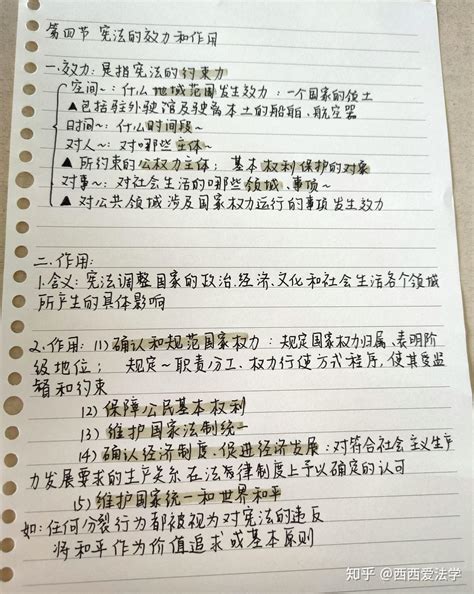 第四节 宪法的效力和作用
一.效力:是指宪法的约束力
空间~:什么地域范围发生效力:一个国家的领土
▲包括驻外驶馆及驶离本土的船舶、航空器
时间~:什么时间段~
对人~:对哪些主体~
▲所约束的公权力主体;基本权利保护的对象
对事~:对社会生活的哪些领域、事项~
▲对公共领域涉及国家权力运行的事项发生效力
二.作用:
1.含义:宪法调整国家的政治.经济.文化和社会生活各个领域
所产生的具体影响
2.作用:(1)确认和规范国家权力:规定国家权力归属、表明阶
级地位; 规定~职责分工、权力行使方式程序,使其受监
督和约束
(2)保障公民基本权利
(3)维护国家法制统一
(4)确认经济制度、促进经济发展:对符合社会主义生产
力发展要求的生产关系在法律制度上予以确定的认可
(5)维护国家统一和世界和平
如:任何分裂行为都被视为对宪法的违反
将和平作为价值追求或基本原则
知乎 @西西爱法学